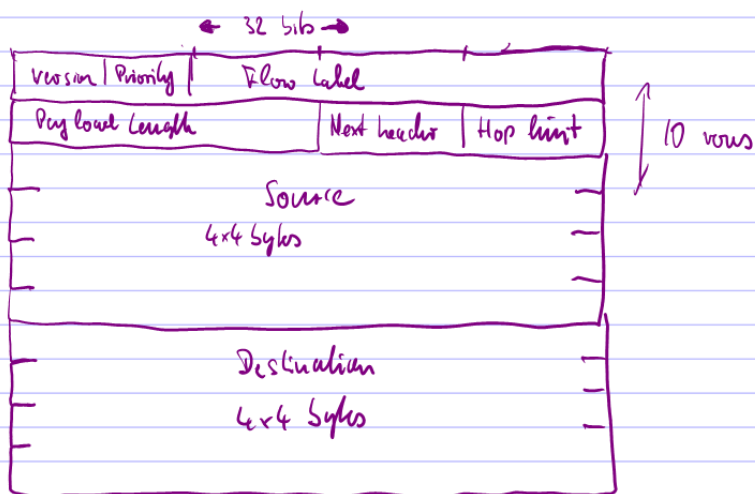 32 bits
Version Priority Flow Label
Payload Length Next header Hop limit
10 rows
Source
4x4 bytes
Destination
4x4 bytes